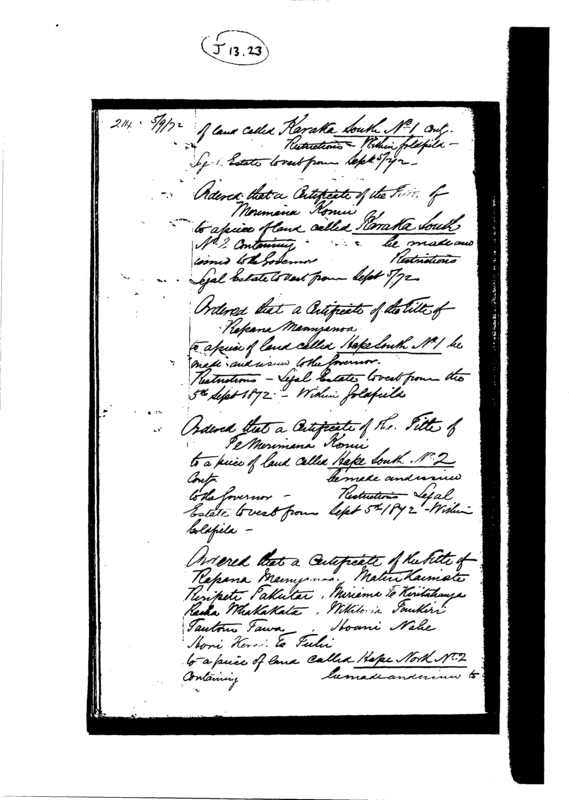 J 13.23
214 5/9/72 of land called Karaka South No 1 Cont.
Restrictions - Within Goldfield -
Estate to vest from Sept 5/72 -
Ordered that a Certificate of the of
Merimana Konui
to a piece of land called Karaka South
No 2 Containing be made and
issued to the Governor Restrictions
Legal Estate to vest from Sept 5/72
Ordered that a Certificate of the Title of
Rapana
to a piece of land called Hape South No 1 be
made and issued to the Governor.
Restrictions - Legal Estate to vest from the
5th Sept 1872 - Within Goldfield
Ordered that a Certificate of the Title of
Te Merimana Konui
to a piece of land called Hape South No 2
Cont be made and issued
to the Governor - Restrictions Legal
Estate to vest from Sept 5th 1872 - Within
Goldfield -
Ordered that a Certificate of the Title of
Rapana
Miriama Te
Whakakata,
Tawa Hoani Nahe
Hori
to a piece of land called Hape North No 2
Containing be made and issued to